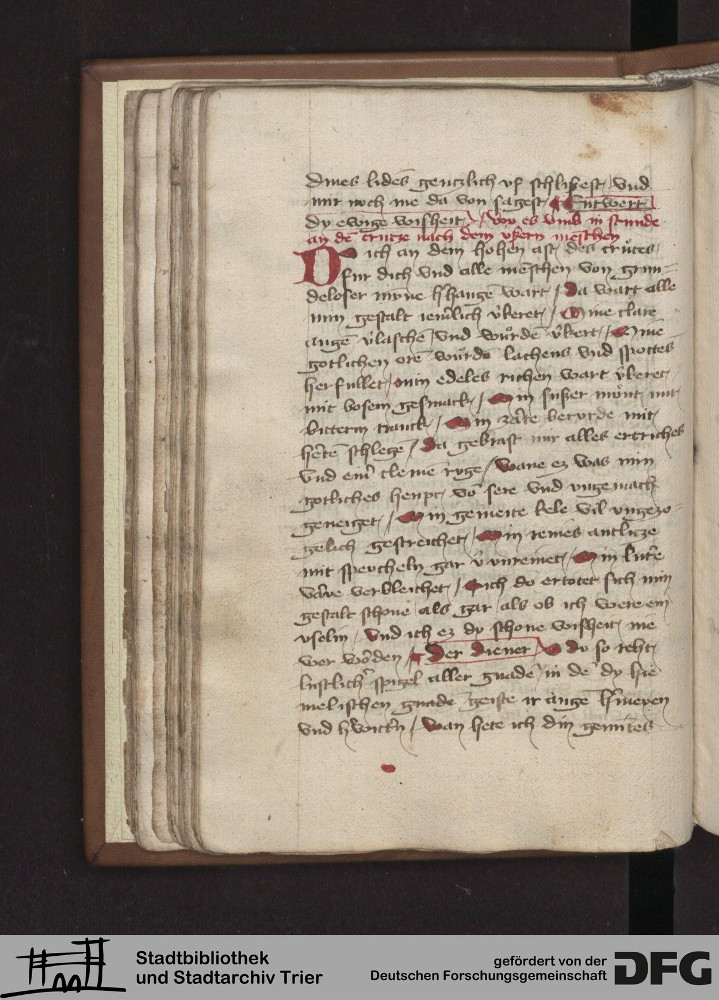 dines lidens genczlich vß schließest / vnd
mir noch me da von sagest / Entwert
dy ewige wisheit / Wy es vmb in stunde
an dē crucze nach dem vßern mēschen
Do ich an dem hohen ast des crúces
fur dich vnd alle mēschen von grun=
deloser mȳne hangē wart / Da wart alle
min gestalt iemlich v̓keret / Mine clare
augē v̓laschē / vnd wurdē v̓kert / Mine
gotlichen orē wurdē lachens vnd spottes
herfullet / min edeles richen wart v̓keret
mit bosem gesmack / Min sußer mūnt mit
bitterm tranck / Min zarte berurde mit
hertē schlegē / Da gebrast mir alles ertriches
vnd einr cleine ruge / wane ez was min
gotliches heupt vō sere vnd vngemach
geneiget / Min gemeite kele vil vngezo=
gelich gestreichet / Min reines antlicze
mit speycheln gar v̓vnreinet / Min luter
varve verbleichet / Sich do ertotet sich min
gestalt schone / als gar / als ob ich were ein
vselin / vnd ich ez dy schone wisheit / nie
wer wordē / Der diener / O du so reht
lustlich spigel aller gnadē / in dē dy hie
melischen gnade geiste ir auge
vnd / wan hete ich din gemītes
Stadtbibliothek
und Stadtarchiv Trier
gefördert von der
Deutschen Forschungsgemeinschaft
DFG